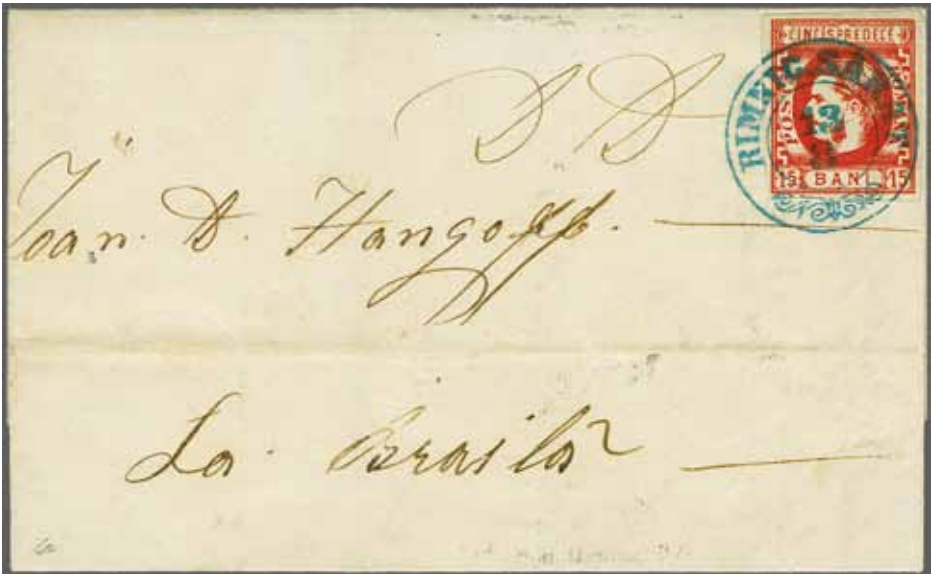 CINCISPREDECE
POSTA ROMANA
15 BANI 15
RIMNIC SAR
13
D D
Ioan. D. Hangoff.
La Braila